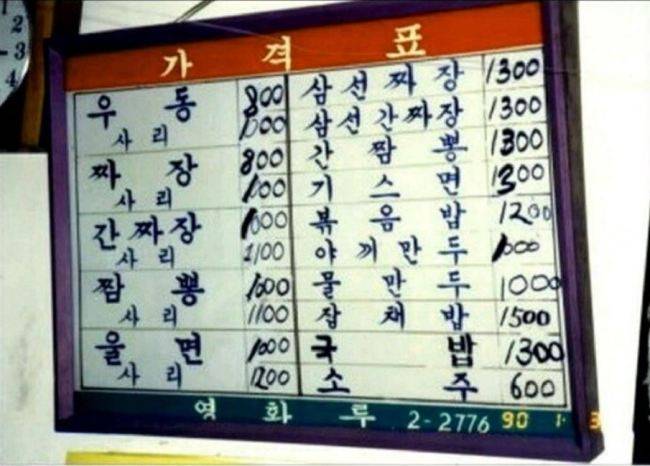 1
2
3
4
가격표
우동 800
사리 1000
짜장 800
사리
간짜장 1000
사리 1100
짬뽕 1000
사리 1100
울면 1000
사리 1200
삼선짜장 1300
삼선간짜장 1300
간짬뽕 1300
기스면 1300
볶음밥 1200
야끼만두 1000
물만두 1000
잡채밥 1500
국밥 1300
소주 600
영화루 2-2776
90 1 3